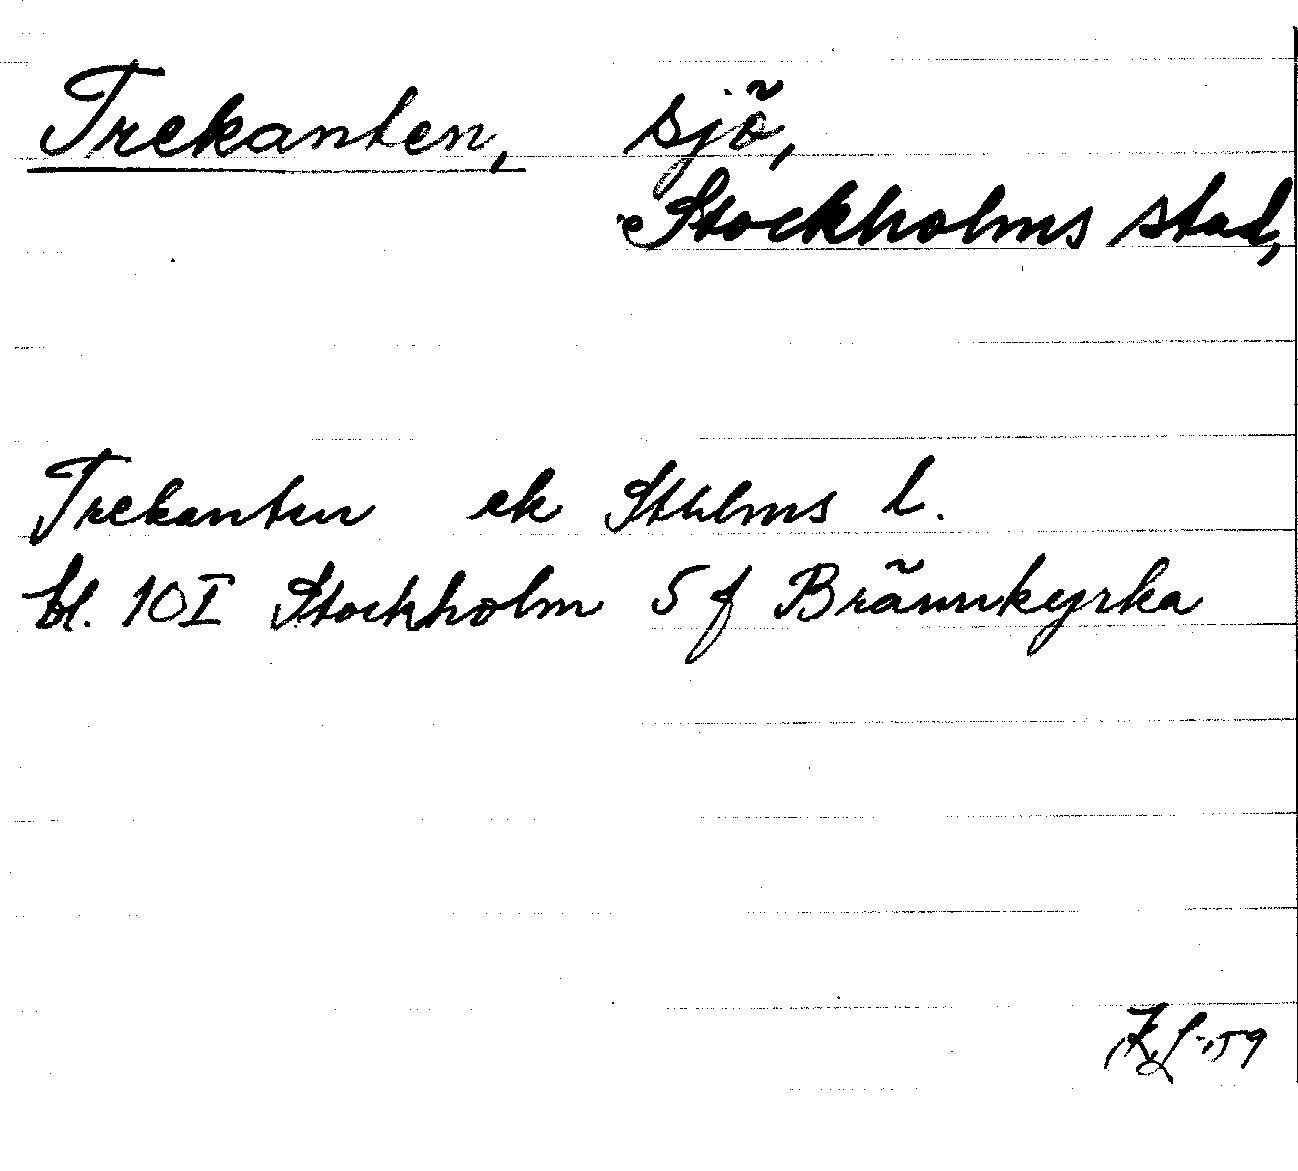 Trekanten, sjö,
Stockholms stad,
Trekanten ek Sthlms l.
bl. 10I Stockholm 5 f Brännkyrka
-59